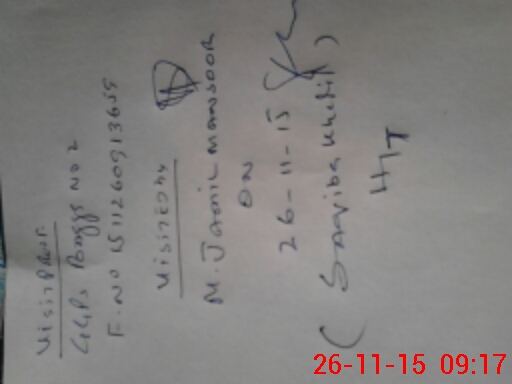 Visit Proof
GGPS Bagga No 2
F. No 1511260913655
Visited by
M. Jamil Mansoor
ON
26-11-15
( Khalil )
H/T
26-11-15 09:17